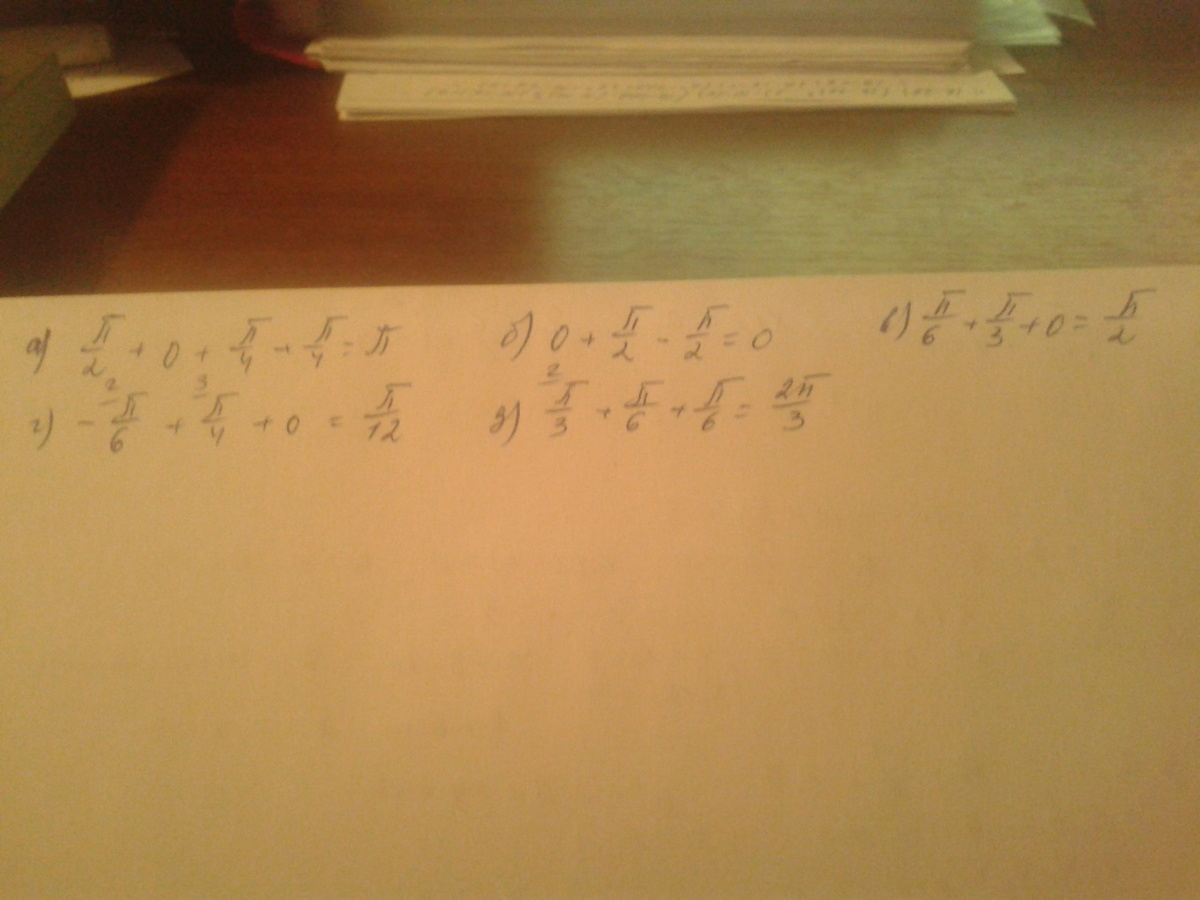 а) π/2 + 0 + π/4 + π/4 = π б) 0 + π/2 - π/2 = 0 в) π/6 + π/3 + 0 = π/2
г) - 2 π/6 + 3 π/4 + 0 = π/12 д) 2 π/3 + π/6 + π/6 = 2π/3